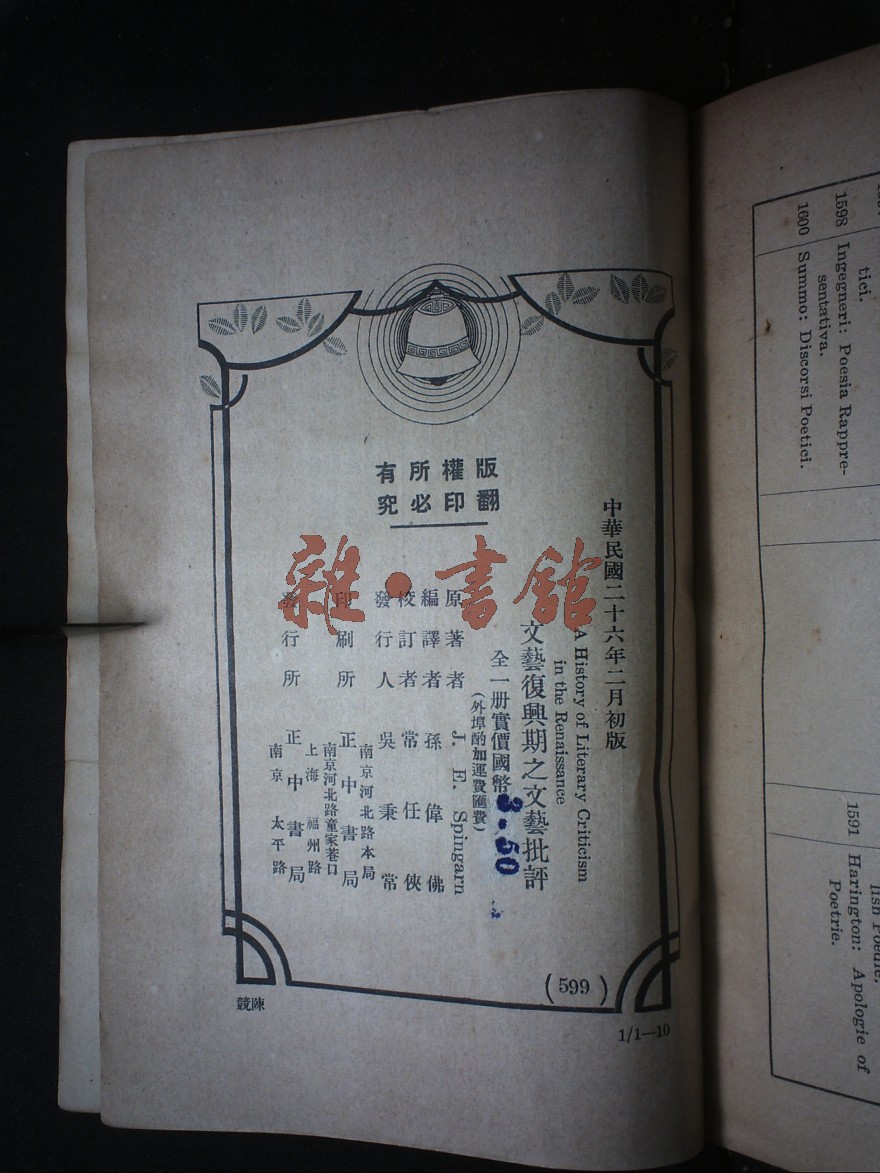 版權所有
翻印必究
中華民國二十六年二月初版
A History of Literary Criticism
in the Renaissance
文藝復興期之文藝批評
全一册實價國幣3.50
(外埠酌加運費匯費)
原著者 J. E. Spingarn
編譯者 孫偉佛
校訂者 常任俠
發行人 吳秉常
南京河北路本局
印刷所 正中書局
南京河北路童家巷口
上海福州路
發行所 正中書局
南京太平路
(599)
陳競
1/1—10
雜·書館
tici.
1598 Ingegneri: Poesia Rappre-
sentativa.
1600 Summo: Discorsi Poetici.
lish Poetrie.
1591 Harington: Apologie of
Poetrie.